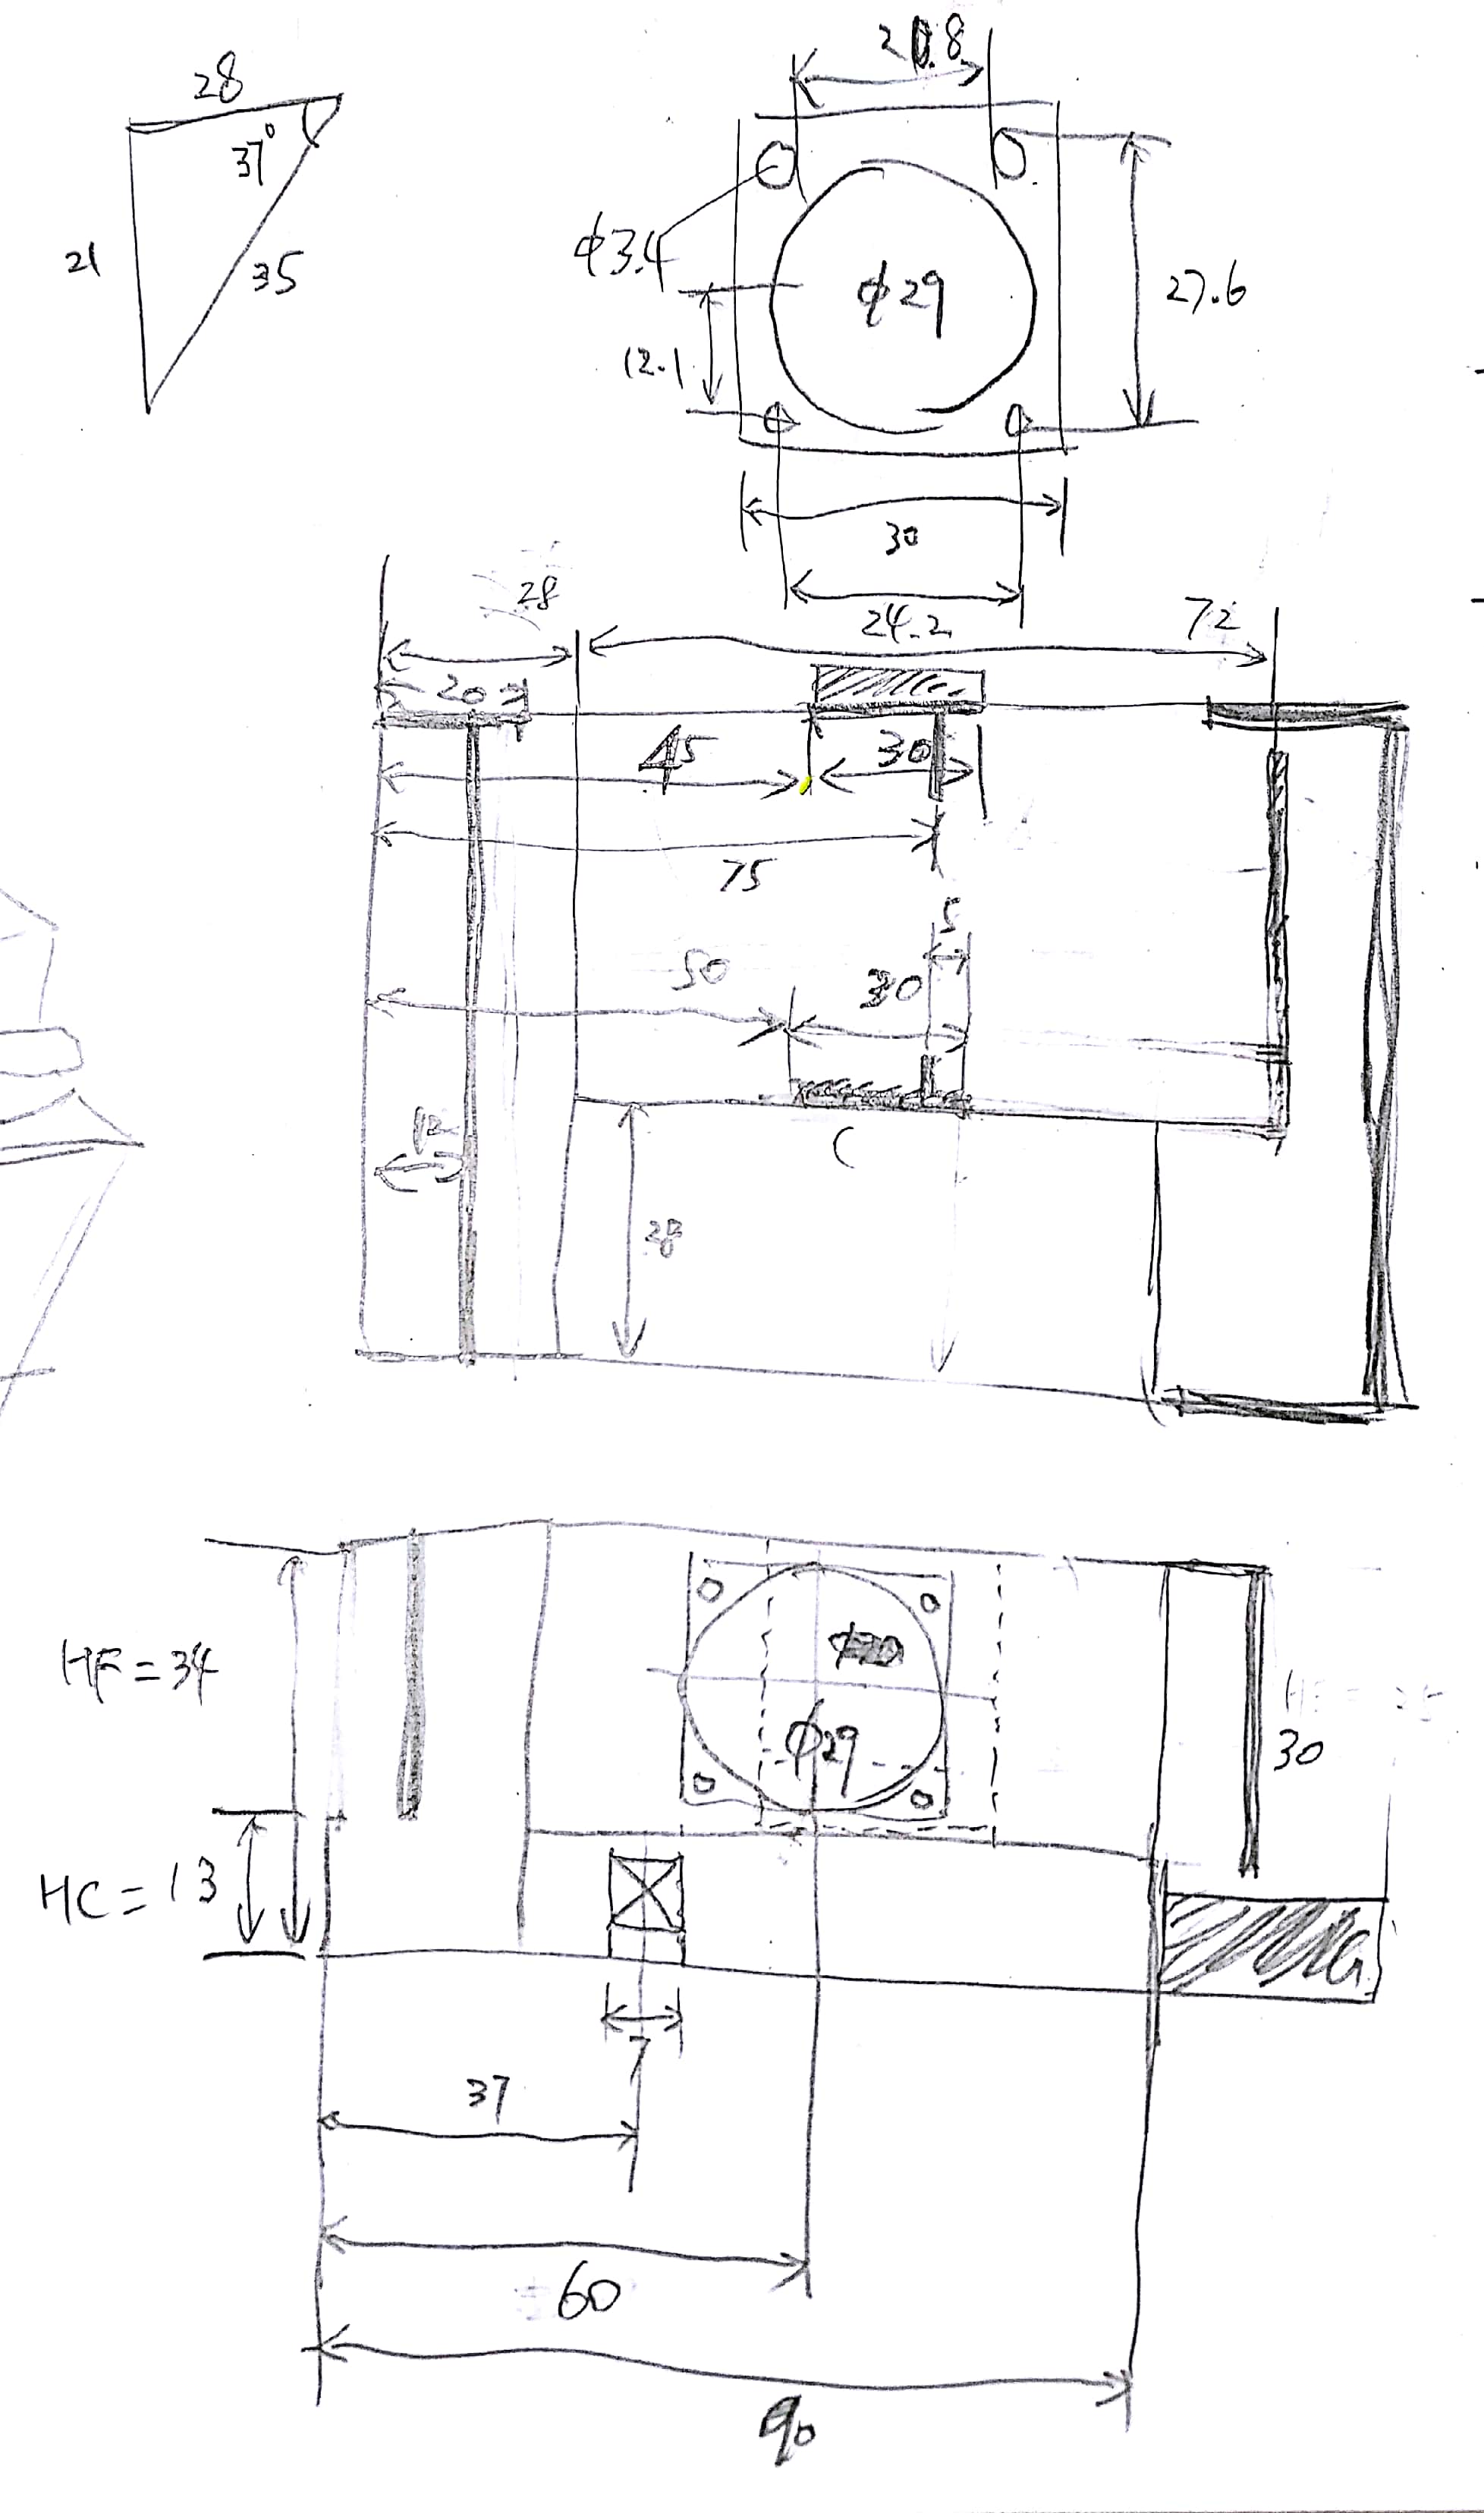 28
37°
21
35
20.8
φ3.4
φ29
27.6
12.1
30
24.2
28
72
20
45
30
75
5
50
30
12
C
28
HF=34
φ29
30
HC=13
7
37
60
90